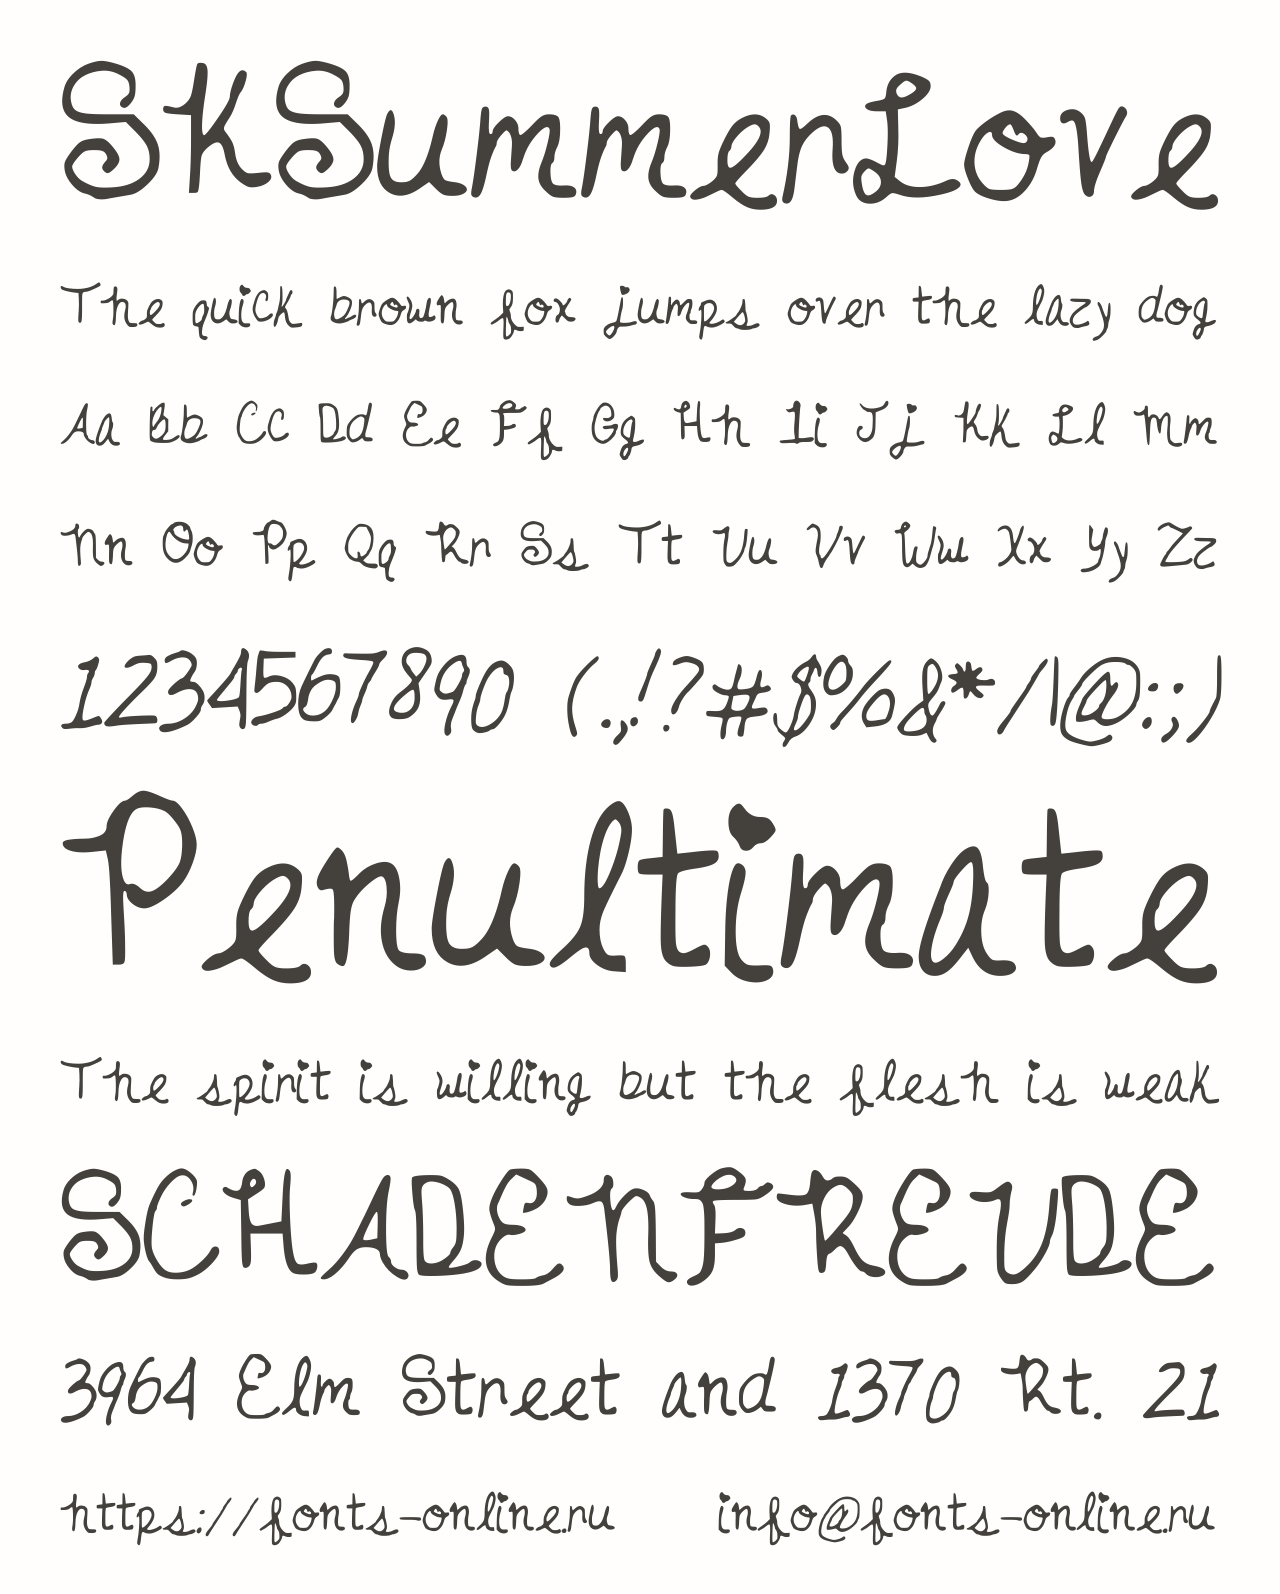 SKSummerLove
The quick brown fox jumps over the lazy dog
Aa Bb Cc Dd Ee Ff Gg Hh Ii Jj Kk Ll Mm
Nn Oo Pp Qq Rr Ss Tt Uu Vv Ww Xx Yy Zz
1234567890 (.,!?#$%&*/|\@:;)
Penultimate
The spirit is willing but the flesh is weak
SCHADENFREUDE
3964 Elm Street and 1370 Rt. 21
https://fonts-online.ru info@fonts-online.ru